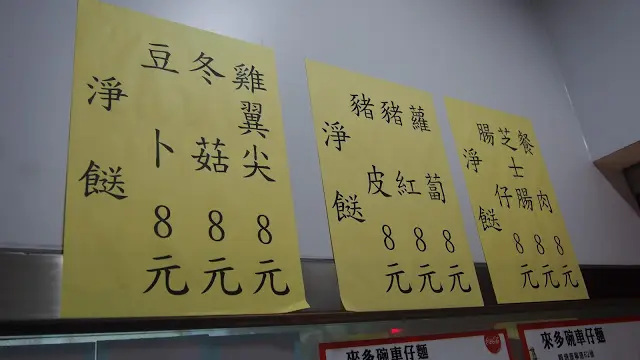 雞翼尖 8元
冬菇 8元
豆卜 8元
淨餸
蘿蔔 8元
豬紅 8元
豬皮 8元
淨餸
餐肉 8元
芝士腸 8元
腸仔 8元
淨餸
來多碗車仔麵
來多碗車仔麵